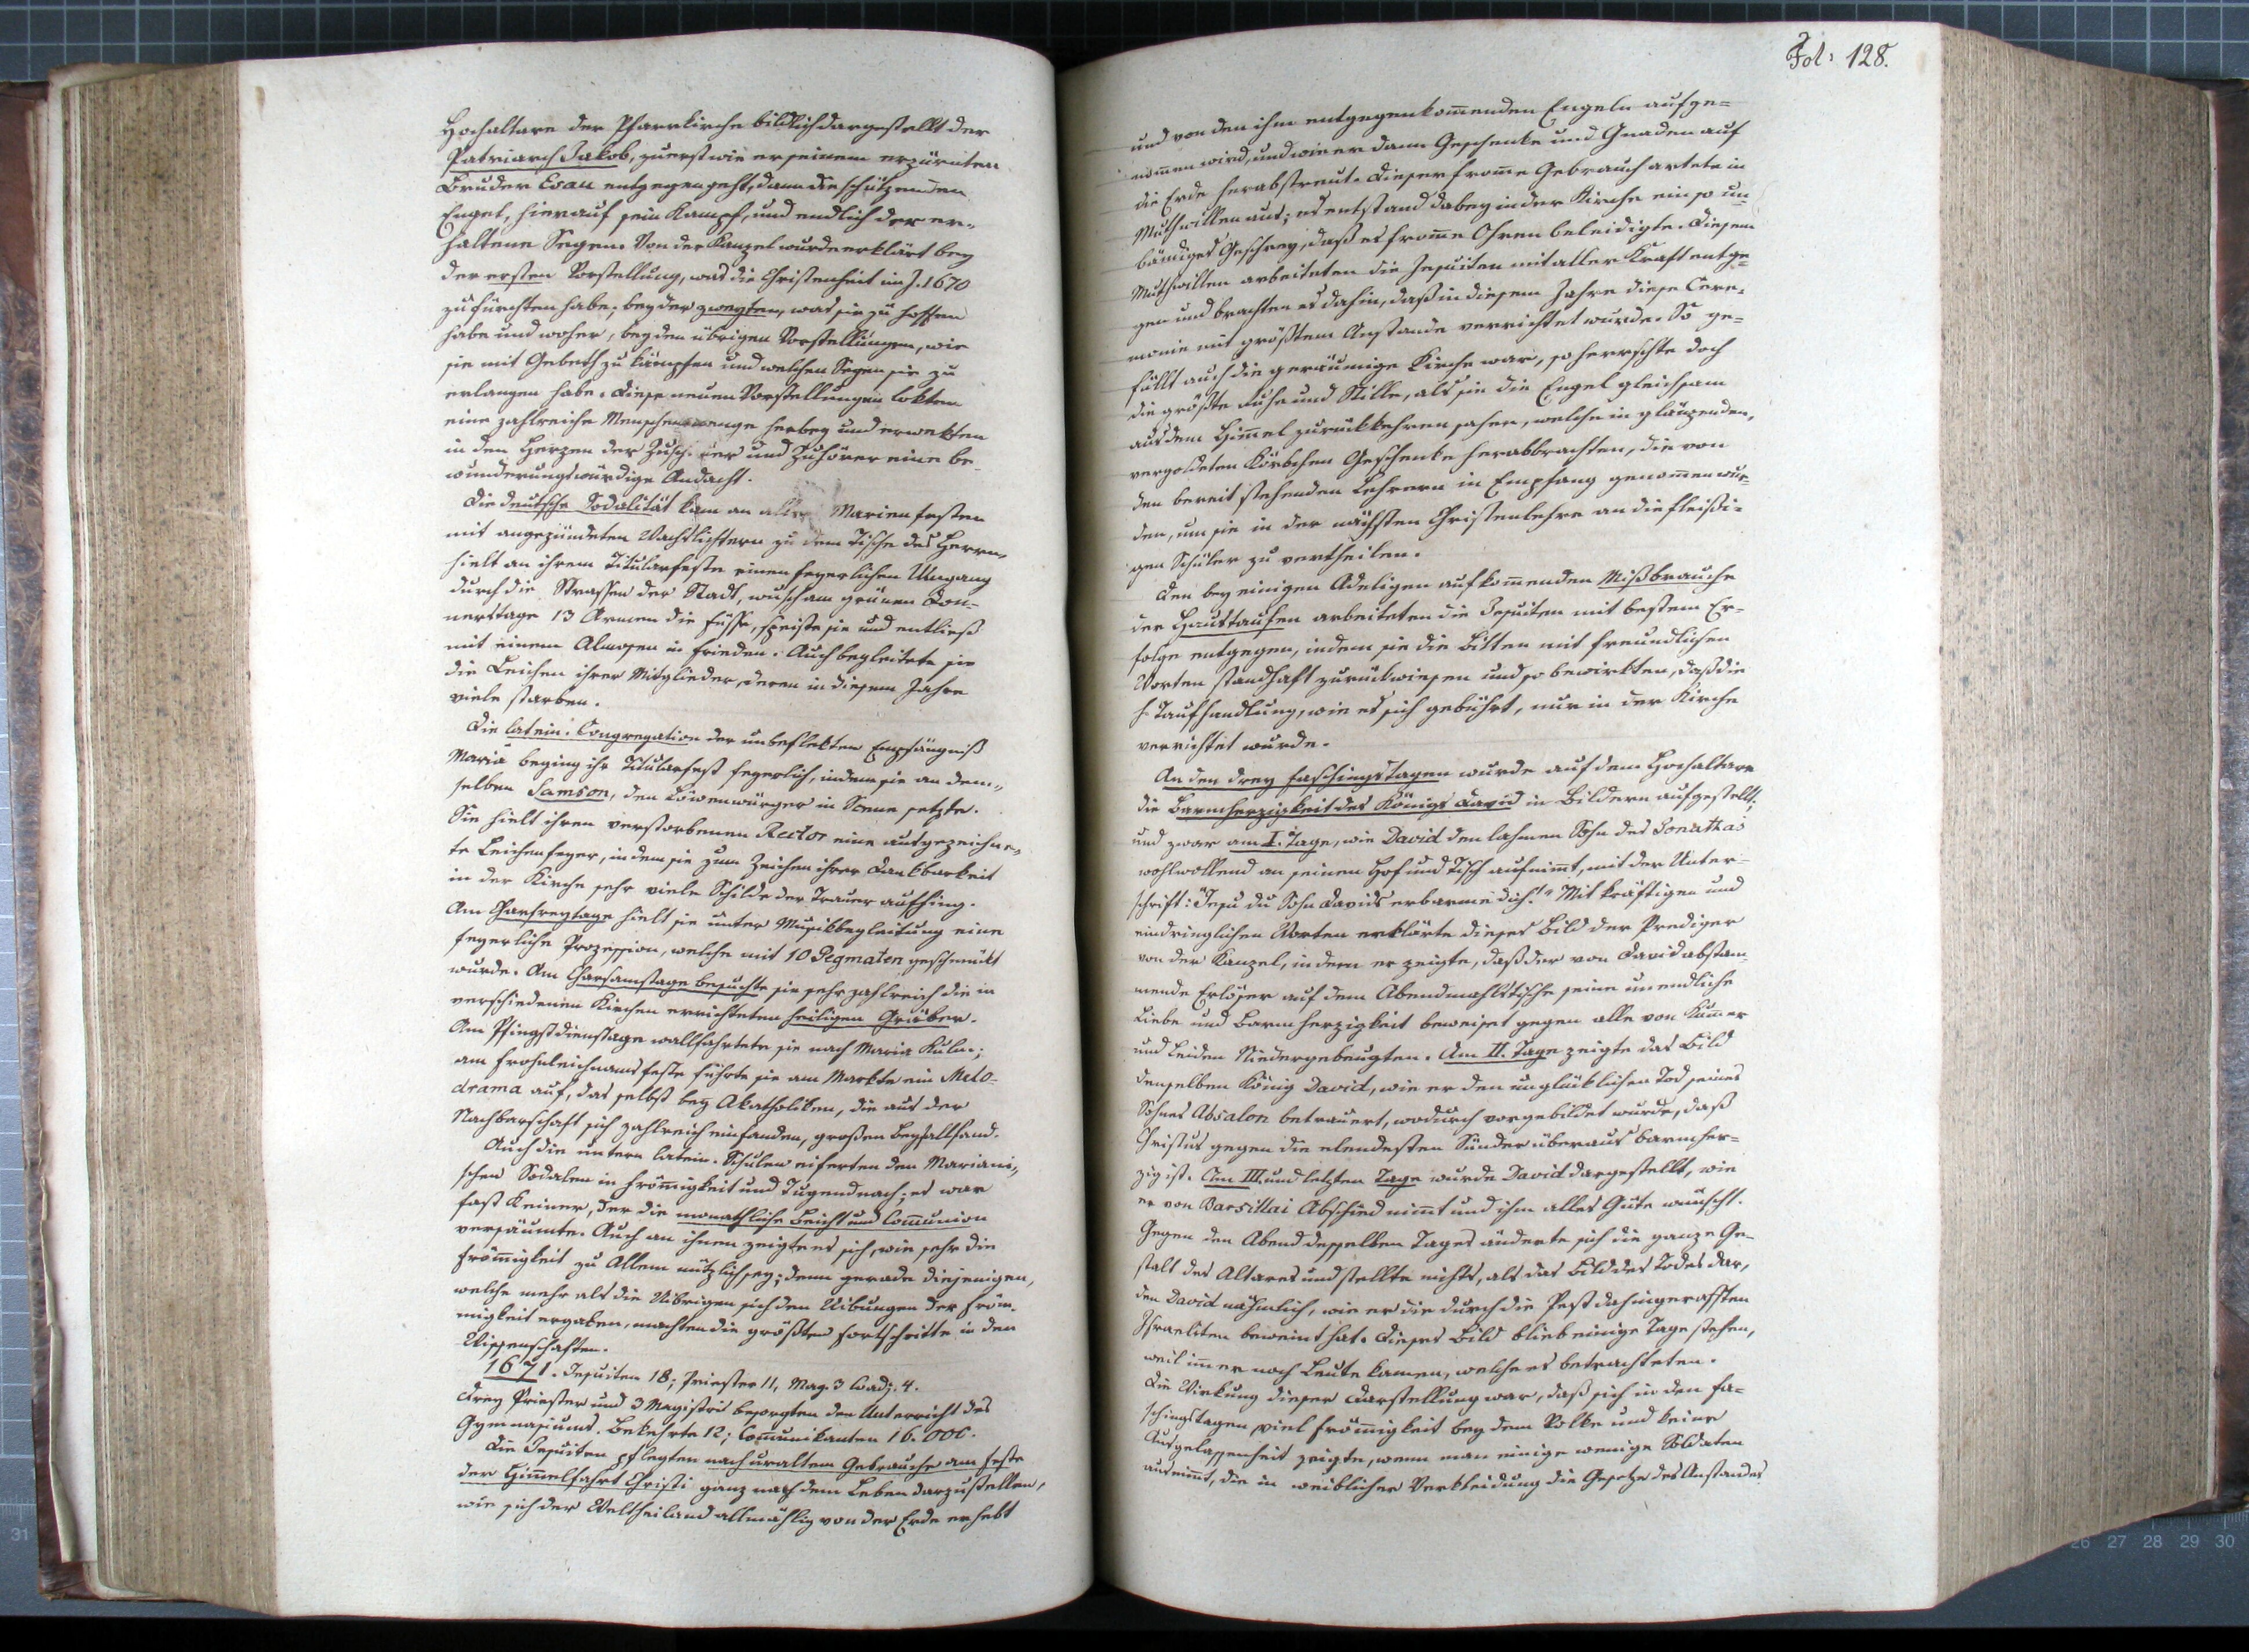 Hochaltare der Pfarrkirche bildlich dargestellt der
Patriarch Jakob, zuerst wie er seinem erzürnten
Bruder Esau entgegengeht, dann die schützenden
Engel, hierauf sein Kampf, und endlich der er-
haltene Segen. Von der Kanzel wurde erklärt bey
der ersten Vorstellung, was die Christenheit im J. 1670
zu fürchten habe; bey der zweyten, was sie zu hoffen
habe und woher; bey den übrigen Vorstellungen, wie
sie mit Gebeth zu kämpfen und welchen Segen sie zu
erlangen habe. Diese neuen Vorstellungen lokten
eine zahlreiche Menschenmenge herbey und erwekten
in den Herzen der Zuseher und Zuhörer eine be-
wunderungswürdige Andacht.
Die deutsche Sodalität kam an allen Marienfesten
mit angezündeten Wachslichtern zu dem Tische des Herrn,
hielt an ihrem Titularfeste einen feyerlichen Umgang
durch die Strassen der Stadt, wusch am grünen Don-
nerstage 13 Armen die Füsse, speiste sie und entließ
mit einem Almosen in Frieden. Auch begleitete sie
die Leichen ihrer Mitglieder, deren in diesem Jahre
viele starben.
Die latein. Congregation der unbeflekten Empfängniß
Mariä beging ihr Titularfest feyerlich, indem sie an dem-
selben Samson, den Löwenwürger in Scene setzte.
Sie hielt ihrem verstorbenen Rector eine ausgezeichne-
te Leichenfeyer, indem sie zum Zeichen ihrer Dankbarkeit
in der Kirche sehr viele Schilde der Trauer aufhing.
Am Charfreytage hielt sie unter Musikbegleitung eine
feyerliche Prozession, welche mit 10 Pegmaten geschmückt
wurde. Am Charsamstage besuchte sie sehr zahlreich die in
verschiedenen Kirchen errichteten heiligen Gräber.
Am Pfingstdienstage wallfahrtete sie nach Maria Kulm;
am Frohnleichnamsfeste führte sie am Markte ein Melo-
drama auf, das selbst bey Akatholiken, die aus der
Nachbarschaft sich zahlreich einfanden, großen Beyfall fand.
Auch die untern latein. Schulen eiferten den Mariani-
schen Sodalen in Frömmigkeit und Tugend nach; es war
fast Keiner, der die monathliche Beicht und Com̅union
versäumte. Auch an ihnen zeigte es sich, wie sehr die
Fröm̅igkeit zu Allem nützlich sey; denn gerade diejenigen,
welche mehr als die Uibrigen sich den Uibungen der Fröm-
migkeit ergaben, machten die größten Fortschritte in den
Wissenschaften.
1671. Jesuiten 18; Priester 11, Mag. 3 Coadj. 4.
Drey Priester und 3 Magistri besorgten den Unterricht des
Gymnasiums. Bekehrte 12; Com̅unikanten 16.000.
Die Jesuiten pflegten nach uraltem Gebrauche am Feste
der Him̅elfahrt Christi ganz nach dem Leben darzustellen,
wie sich der Weltheiland allmählig von der Erde erhebt
Fol: 128.
und von den ihm entgegenkom̅enden Engeln aufge-
nom̅en wird, und wie er dann Geschenke und Gnaden auf
die Erde herabstreut. Dieser from̅e Gebrauch artete in
Muthwillen aus; es entstand dabey in der Kirche ein so un-
bändiges Geschrey, daß es from̅e Ohren beleidigte. Diesem
Muthwillen arbeiteten die Jesuiten mit aller Kraft entge-
gen und brachten es dahin, daß in diesem Jahre diese Cere-
monie mit größtem Anstande verrichtet wurde. So ge-
füllt auch die geräumige Kirche war, so herrschte doch
die größte Ruhe und Stille, als sie die Engel gleichsam
aus dem Him̅el zurückkehren sahen, welche in glänzenden,
vergoldeten Körbchen Geschenke herabbrachten, die von
den bereit stehenden Lehrern in Empfang genom̅en wur-
den, um sie in der nächsten Christenlehre an die fleißi-
gen Schüler zu vertheilen.
Den bey einigen Adeligen aufkom̅enden Mißbrauche
der Haustaufen arbeiteten die Jesuiten mit bestem Er-
folge entgegen, indem sie die Bitten mit freundlichen
Worten standhaft zurückwiesen und so bewirkten, daß die
h. Taufhandlung, wie es sich gebührt, nur in der Kirche
verrichtet wurde.
An den drey Faschingstagen wurde auf dem Hochaltare
die Barmherzigkeit des Königs David in Bildern aufgestellt;
und zwar am I. Tage, wie David den lahmen Sohn des Jonathas
wohlwollend an seinen Hof und Tisch aufnim̅t, mit der Unter-
schrift: "Jesu du Sohn Davids erbarme dich!" Mit kräftigen und
eindringlichen Worten erklärte dieses Bild der Prediger
von der Kanzel, indem er zeigte, daß der von David abstam-
mende Erlöser auf dem Abendmahlstische seine unendliche
Liebe und Barmherzigkeit beweiset gegen alle von Kum̅er
und Leiden Niedergebeugten. Am II. Tage zeigte das Bild
denselben König David, wie er den unglücklichen Tod seines
Sohnes Absalon betrauert, wodurch vorgebildet wurde, daß
Christus gegen die elendesten Sünder überaus barmher-
zig ist. Am III. und letzten Tage wurde David dargestellt, wie
er von Barsillai Abschied nim̅t und ihm alles Gute wünscht.
Gegen den Abend desselben Tages änderte sich die ganze Ge-
stalt des Altares und stellte nichts, als das Bild des Todes dar,
den David nähmlich, wie er die durch die Pest dahingerafften
Israeliten beweint hat. Dieses Bild blieb einige Tage stehen,
weil im̅er noch Leute kamen, welche es betrachteten.
Die Wirkung dieser Darstellung war, daß sich in den Fa-
schingstagen viel Fröm̅igkeit bey dem Volke und keine
Ausgelassenheit zeigte, wenn man einige wenige Soldaten
ausnim̅t, die in weiblicher Verkleidung die Gesetze des Anstandes